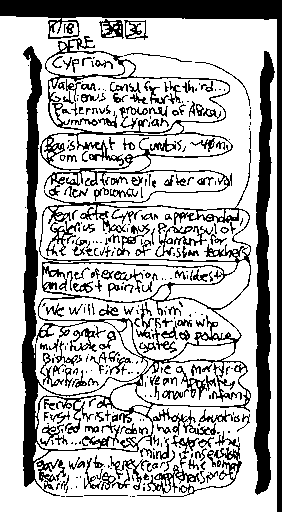 1/18 36
DERE
Cyprian
Valerian... Consul for the third...
Galienus for the fourth.
Paternus, proconsul of Africa,
summoned Cyprian
Banishment to Curubis, ~40 mi
from Carthage
Recalled from exile after arrival
of new proconsul
Year after Cyprian apprehended,
Galerius Maximus, Proconsul of
Africa... imperial warrant for
the execution of Christian teachers
Manner of execution... mildest
and least painful
We will die with him
Christians who
waited @ palace
gates
Of so great a
multitude of
Bishops in Africa...
Cyprian... First...
martyrdom
Die a martyr or
live an Apostate,
...honor or infamy
Fervor of
First Christians
desired martyrdom
with... eagerness
although devotion
had raised...
this fever of the
mind, it insensibly
gave way to hopes, fears of the human
heart... love of life, apprehension of
pain... horror of dissolution